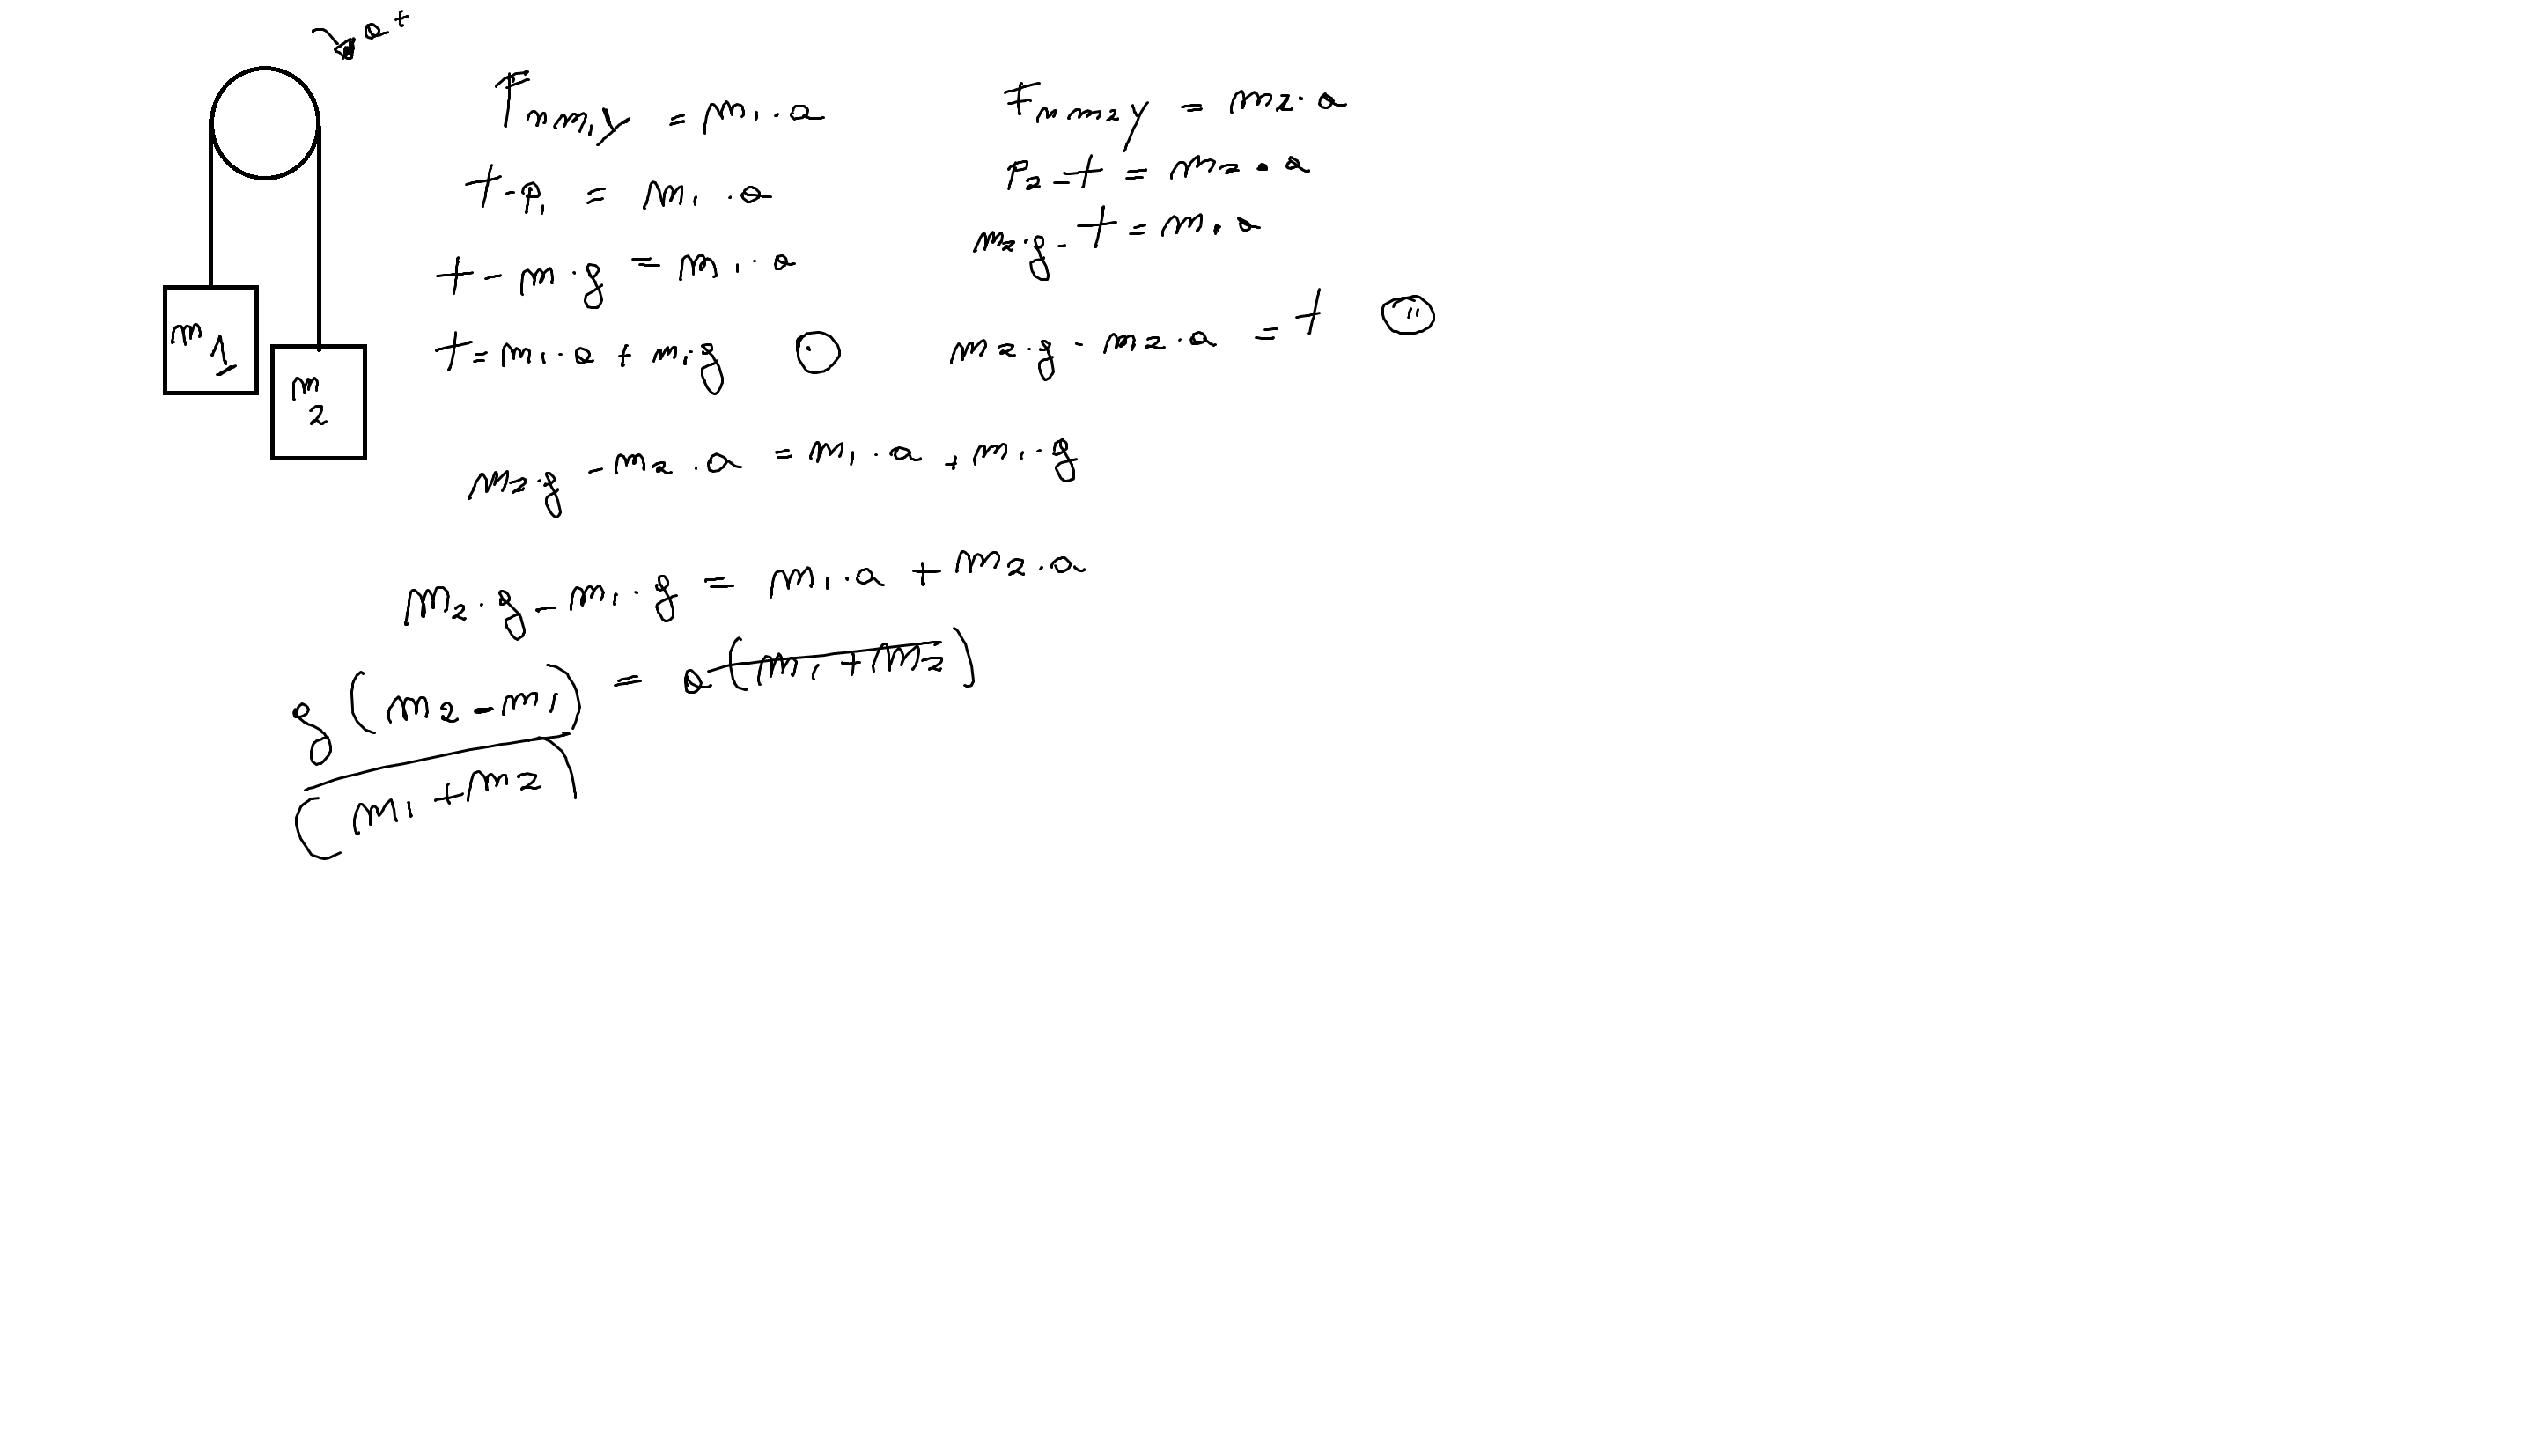 a +
F n m1 y = m1 . a
t - P1 = m1 . a
t - m . g = m1 . a
t = m1 . a + m1 . g
F n m2 y = m2 . a
P2 - t = m2 . a
m2 . g - t = m . a
m2 . g - m2 . a = t
m 1
m 2
m2 . g - m2 . a = m1 . a + m1 . g
m2 . g - m1 . g = m1 . a + m2 . a
g ( m2 - m1 ) = a ( m1 + m2 )
( m1 + m2 )